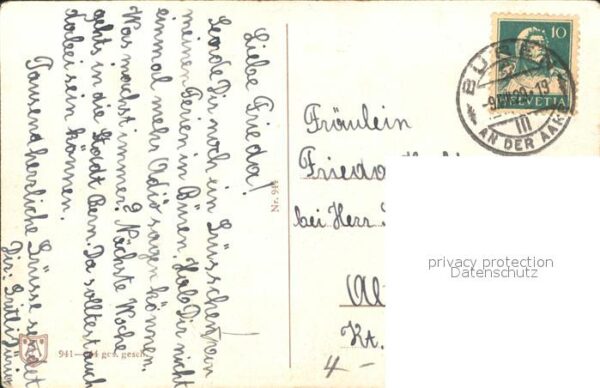 Liebe Frieda!
Sende Dir noch ein Grüsschen von
meinen Ferien in Büren. Hab Dir nicht
einmal mehr Adiö sagen können.
Was machst immer? Nächste Woche
gehts in die Stadt Bern. Da solltest auch
dabei sein können.
Tausend herzliche Grüsse sendet
Dir: Gritli
Nr. 941
941 ges. gesch.
10
HELVETIA
BÜREN
AN DER AARE
III
Fräulein
Frieda
bei Herr
Al
Kt.
4 -
privacy protection
Datenschutz